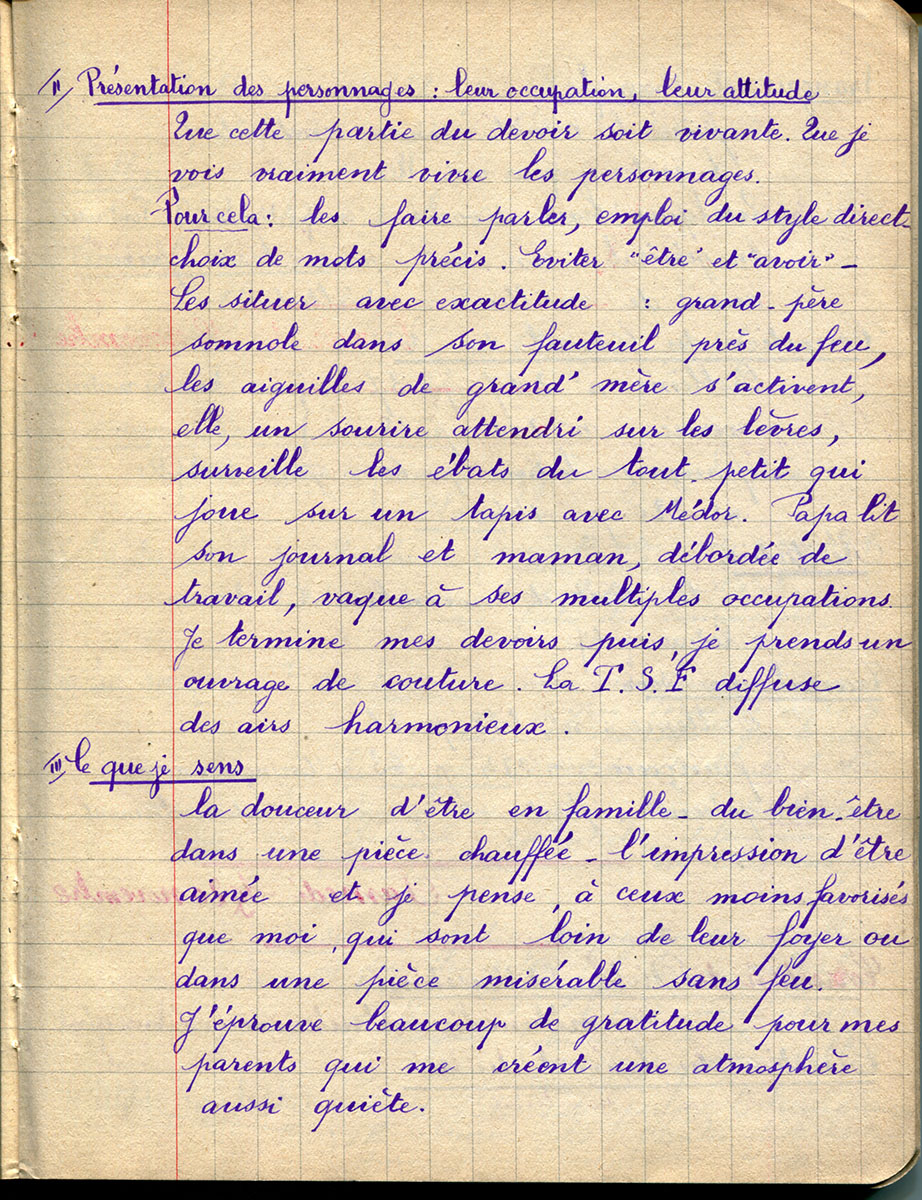 II/ Présentation des personnages : leur occupation, leur attitude
Que cette partie du devoir soit vivante. Que je
vois vraiment vivre les personnages.
Pour cela : les faire parler, emploi du style direct-
choix de mots précis. Eviter "être" et "avoir" -
Les situer avec exactitude : grand-père
somnole dans son fauteuil près du feu,
les aiguilles de grand' mère s'activent,
elle, un sourire attendri sur les lèvres,
surveille les ébats du tout-petit qui
joue sur un tapis avec Médor. Papa lit
son journal et maman, débordée de
travail, vaque à ses multiples occupations.
Je termine mes devoirs puis, je prends un
ouvrage de couture. La T.S.F diffuse
des airs harmonieux.
III/ Ce que je sens
la douceur d'être en famille - du bien-être
dans une pièce chauffée - l'impression d'être
aimée et je pense, à ceux moins favorisés
que moi, qui sont loin de leur foyer ou
dans une pièce misérable sans feu.
J'éprouve beaucoup de gratitude pour mes
parents qui me créent une atmosphère
aussi quiète.